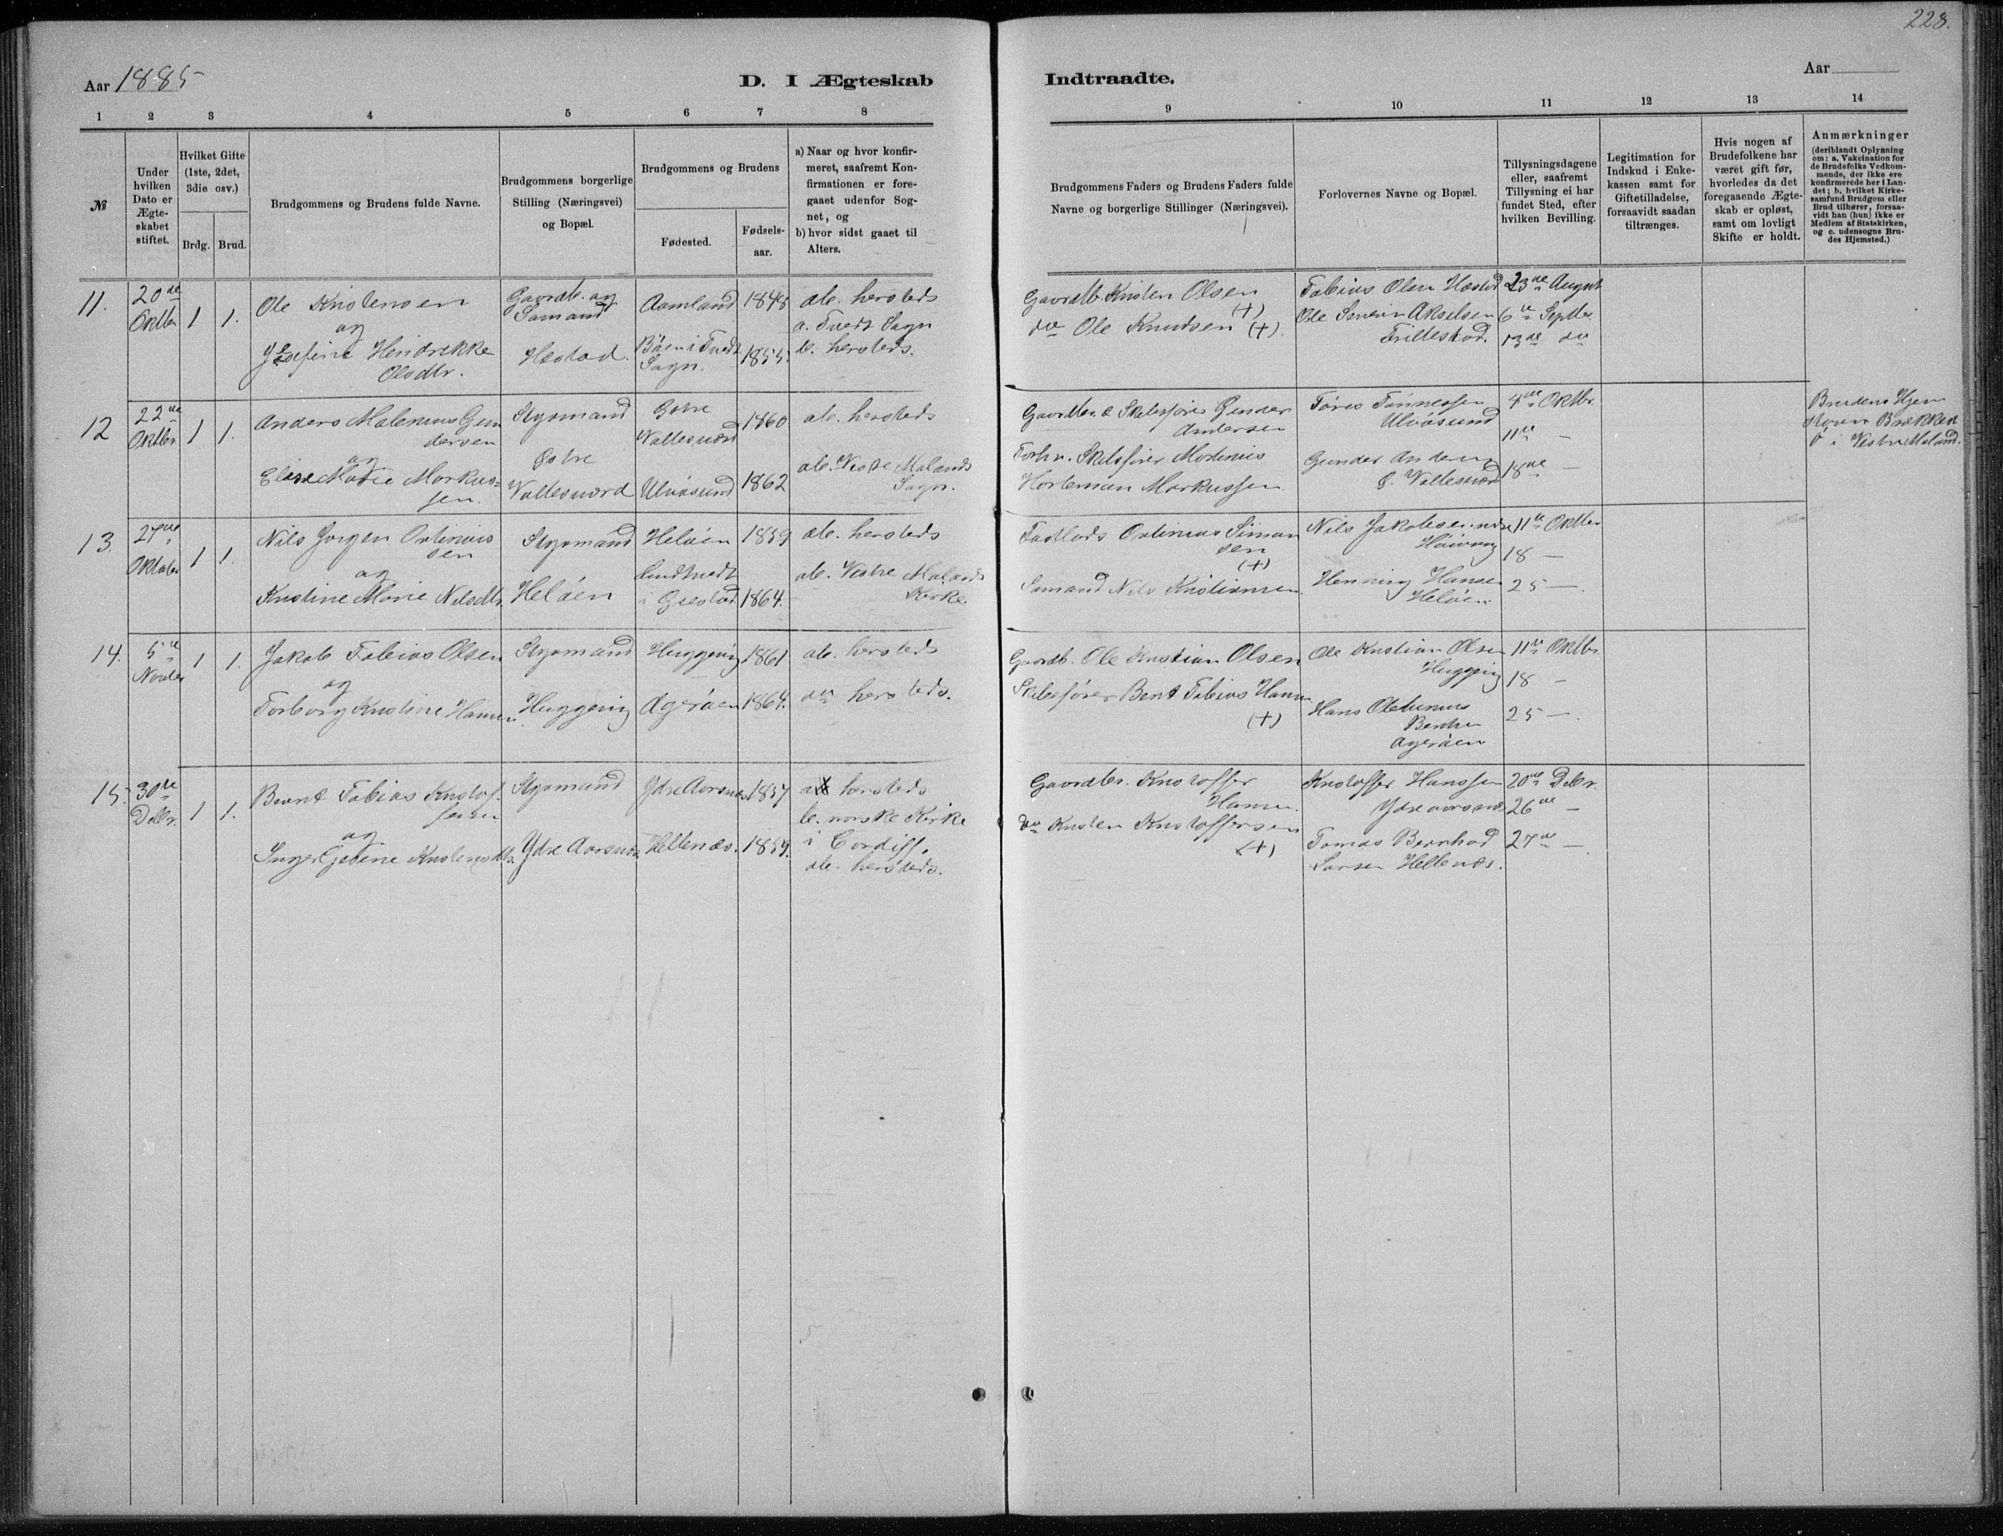 228.
Aar 1885
D. I Ægteskab
Indtraadte.
Aar
1 2 3 4 5 6 7 8
9 10 11 12 13 14
№
Under hvilken Dato er Ægteskabet stiftet.
Hvilket Gifte (1ste, 2det, 3die osv.)
Brdg.
Brud.
Brudgommens og Brudens fulde Navne.
Brudgommens borgerlige Stilling (Næringsvei) og Bopæl.
Brudgommens og Brudens
Fødested.
Fødselsaar.
a) Naar og hvor konfirmeret, saafremt Konfirmationen er foregaaet udenfor Sognet, og
b) hvor sidst gaaet til Alters.
Brudgommens Faders og Brudens Faders fulde Navne og borgerlige Stillinger (Næringsvei).
Forlovernes Navne og Bopæl.
Tillysningsdagene eller, saafremt Tillysning ei har fundet Sted, efter hvilken Bevilling.
Legitimation for Indskud i Enkekassen samt for Giftetilladelse, forsaavidt saadan tiltrænges.
Hvis nogen af Brudefolkene har været gift før, hvorledes da det foregaaende Ægteskab er opløst, samt om lovligt Skifte er holdt.
Anmærkninger
(deriblandt Oplysning om: a. Vakcination for de Brudefolks Vedkommende, der ikke ere konfirmerede her i Landet; b. hvilket Kirkesamfund Brudgom eller Brud tilhører, forsaavidt han (hun) ikke er Medlem af Statskirken, og c. udensogns Brudes Hjemsted.)
11. 20de Oktbr 1 1.
Ole Kristensen
og
Josefine Hendrekke
Olsdtr.
Gaardb. og
Sømand
Hestad.
Aamland 1845
Bøen i Tvedt
Sogn. 1855.
ab. hersteds
a. Tvedt Sogn
b. hersteds.
Gaardb. Kristen Olsen (+)
do Ole Knudsen (+).
Tobias Olsen Hestad
Ole Severin Akselsen
Trillestad.
23de August
6te Septbr.
13de do
12 22de Oktbr 1 1.
Anders Malenius Gun
dersen
og
Elise Marie Markus=
sen.
Styrmand
Østre
Vallesværd
Østre
Vallesværd 1860
Ulvøsund 1862
ab. hersteds
ab. Vestre Molands
Sogn.
Gaardbr. & Skibsfører Gunder
Andersen
Forhv. Skibsfører Mortinius
Horteman Markussen.
Tøres Tønnessen
Ulvøsund
Gunder Andersen
Ø. Vallesværd
4de Oktbr.
11te —
18de —
Brudens Hjem
i Vestre Moland.
13. 27de Oktober 1 1.
Nils Jørgen Ostinius
sen
og
Kristine Marie Nilsdtr.
Styrmand
Heløen
Heløen 1859
Lundtvedt
i Gjestad 1864.
ab. hersteds
ab. Vestre Molands
Kirke
Ostinius Simon
sen
(+)
Sømand Nils Kristiansen.
Nils Jakobsen
Høivaag
Henning Hansen
Heløen
11te Oktbr
18 —
25 —.
14. 5te Novbr 1 1.
Jakob Tobias Olsen
og
Torborg Kristine Hansen.
Styrmand
Huggevig
Huggevig 1861
Agerøen 1864.
ab. hersteds
do hersteds.
Gaardb. Ole Kristian Olsen
Skibsfører Bent Tobias Hansen
(+)
Ole Kristian Olsen
Huggevig
Hans Olebenius
Bentsen
Agerøen
11te Oktbr.
18 —
25 —.
15. 30te Debr. 1 1.
Bernt Tobias Kristof=
fersen
og
Inger Gjetine Kristensdtr.
Styrmand
Ydre Aarsnes
Ydre Aarsnes 1857
Hellenæs. 1859.
a hersteds
b. norske Kirke
i Cardiff.
ab. hersteds.
Gaardbr. Kristoffer
Hansen.
do Kristen Kristoffersen
(+)
Kristoffer Hanssen
Ydre aarsnæs
Tomas Bernhard
Larsen Hellenæs.
20de Debr.
26de —
27de —.